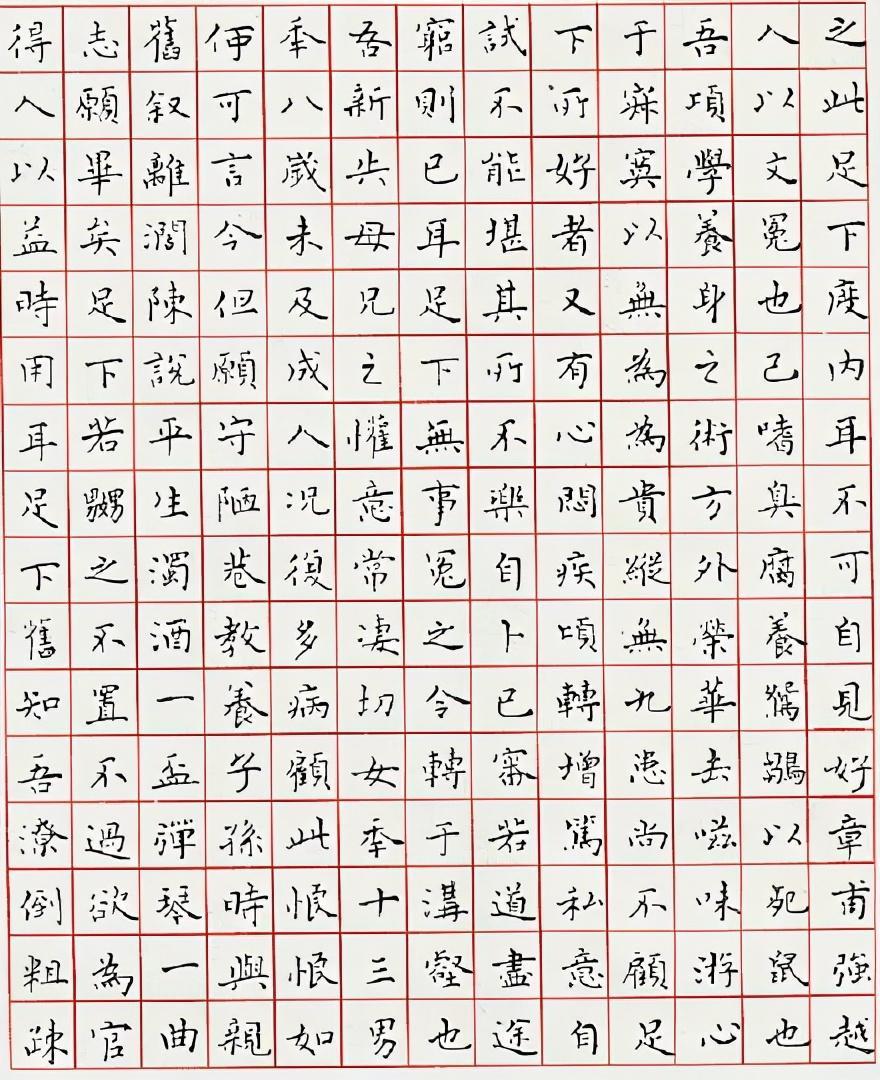 之此足下度内耳不可自見好章甫強越
人以文冕也己嗜臭腐養鴛鶵以死鼠也
吾頃學養身之術方外榮華去滋味游心
于寂寞以無為為貴縱無九患尚不顧足
下所好者又有心悶疾頃轉增篤私意自
試不能堪其所不樂自卜已審若道盡途
窮則已耳足下無事冤之令轉于溝壑也
吾新失母兄之懽意常凄切女年十三男
年八歲未及成人況復多病顧此恨恨如
何可言今但願守陋巷教養子孫時與親
舊叙離濶陳說平生濁酒一盃彈琴一曲
志願畢矣足下若嬲之不置不過欲為官
得人以益時用耳足下舊知吾潦倒粗疎